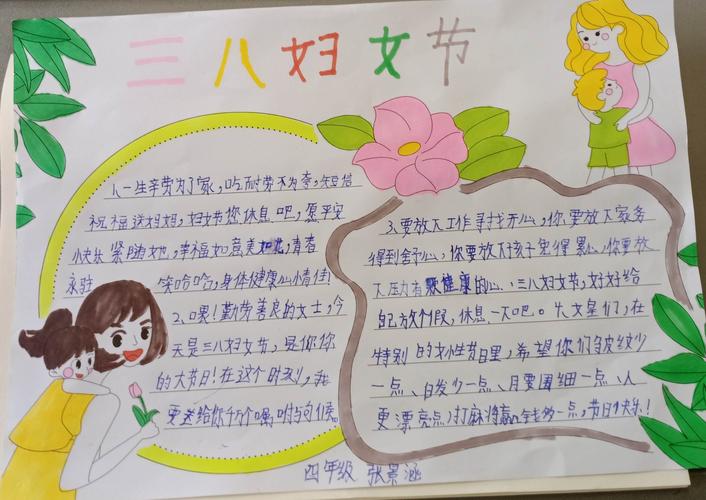 三八妇女节
1、一生辛劳为了家,吃耐劳不为夸,短信
祝福送妈妈,妇女节您休息吧,愿平安
小快乐紧随她,幸福如意美如花,青春
永驻 笑哈哈,身体健康心情佳!
2、嘿!勤劳善良的女士,今
天是三八妇女节,是你
的大节日!在这个时刻,我
更送给你千万个嘱咐与问候。
3、要放下工作寻找开心,你要放下家务
得到舒心,你要放下孩子免得累心,你要放
下压力有颗健康的心、三八妇女节,好好给
自己放个假,休息一天吧。 女皇们,在
特别的女性节日里,希望你们皱纹少
一点、白发少一点、月要围细一点、人
更漂亮点,打麻将赢金钱多一点,节日快乐!
四年级 张景涵